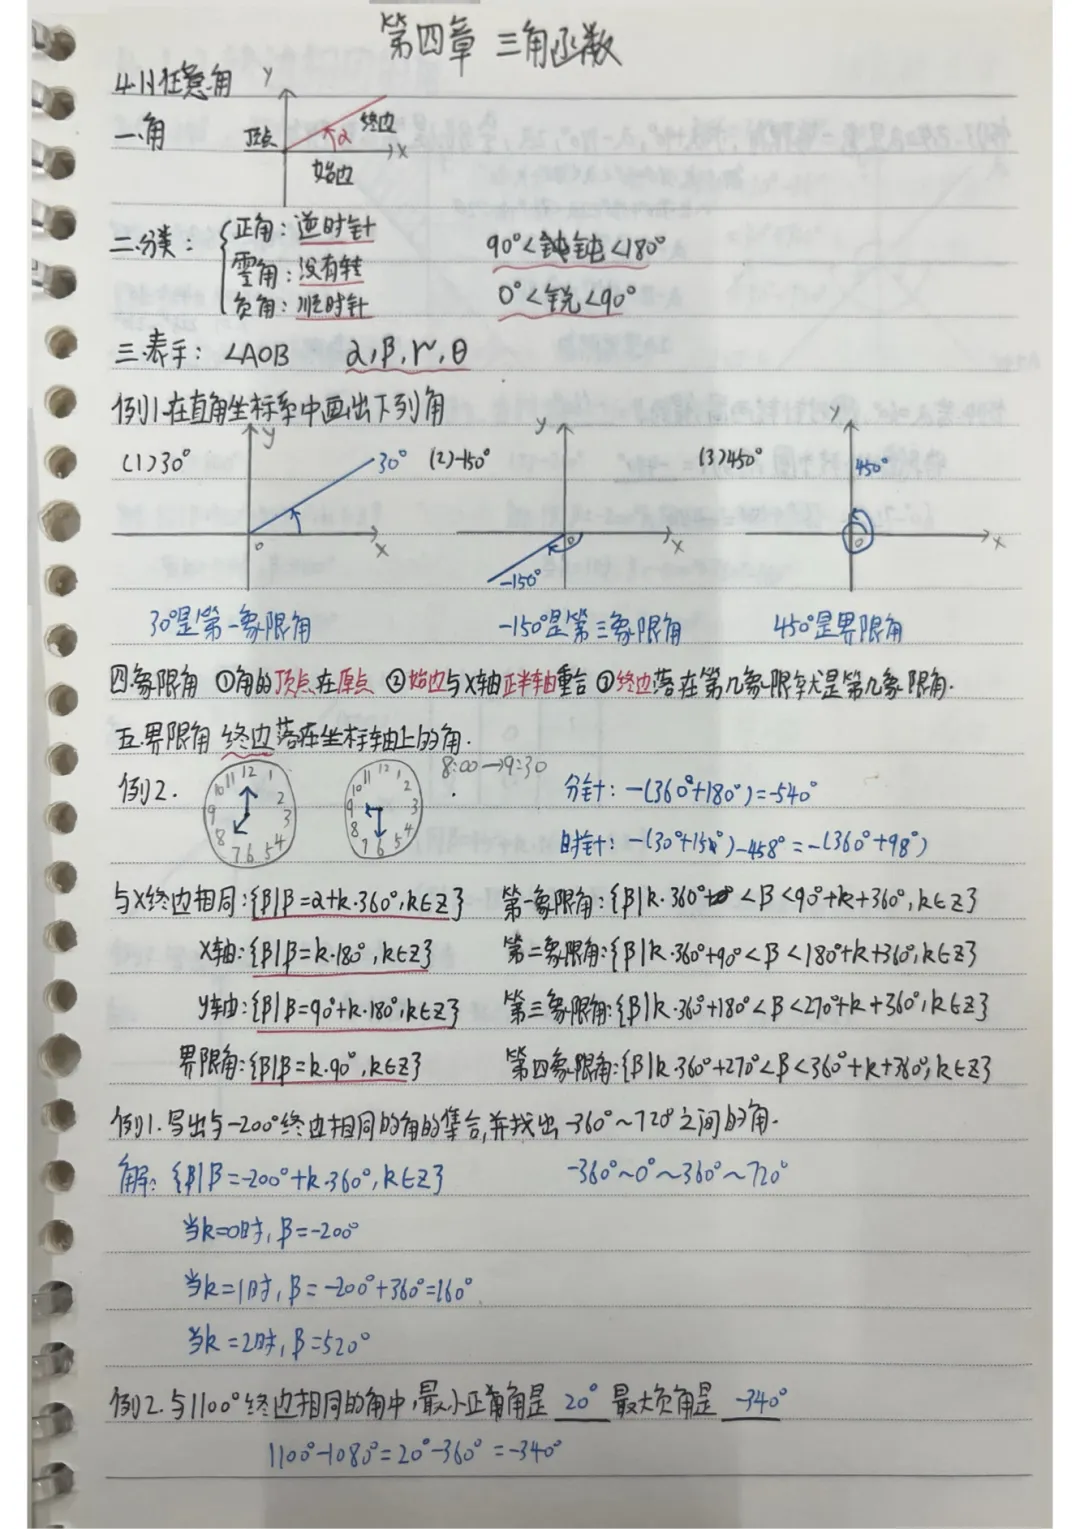 第四章 三角函数
4.1.1任意角
一.角
y
顶点
α
终边
x
始边
二.分类：
正角：逆时针
零角：没有转
负角：顺时针
90°<钝钝<180°
0°<锐<90°
三.表示：∠AOB α,β,γ,θ
例1.在直角坐标系中画出下列角
(1)30° y 30° x o
(2)-150° y x o -150°
(3)450° y 450° x o
30°是第一象限角 -150°是第三象限角 450°是界限角
四.象限角 ①角的顶点在原点 ②始边与X轴正半轴重合 ③终边落在第几象限就是第几象限角.
五.界限角 终边落在坐标轴上的角.
例2.
12 1 2 3 4 5 6 7 8 9 10 11
12 1 2 3 4 5 6 7 8 9 10 11
8:00→9:30
分针：-(360°+180°)=-540°
时针：-(30°+15°)-458°=-(360°+98°)
与X终边相同:{β|β=α+k·360°,k∈Z} 第一象限角:{β|k·360°+0°<β<90°+k+360°,k∈Z}
X轴:{β|β=k·180°,k∈Z} 第二象限角:{β|k·360°+90°<β<180°+k+360°,k∈Z}
y轴:{β|β=90°+k·180°,k∈Z} 第三象限角:{β|k·360°+180°<β<270°+k+360°,k∈Z}
界限角:{β|β=k·90°,k∈Z} 第四象限角:{β|k·360°+270°<β<360°+k+360°,k∈Z}
例1.写出与-200°终边相同的角的集合,并找出-360°~720°之间的角.
解：{β|β=-200°+k·360°,k∈Z} -360°~0°~360°~720°
当k=0时,β=-200°
当k=1时,β=-200°+360°=160°
当k=2时,β=520°
例2.与1100°终边相同的角中,最小正角是 20° 最大负角是 -340°
1100°-1080°=20°-360°=-340°